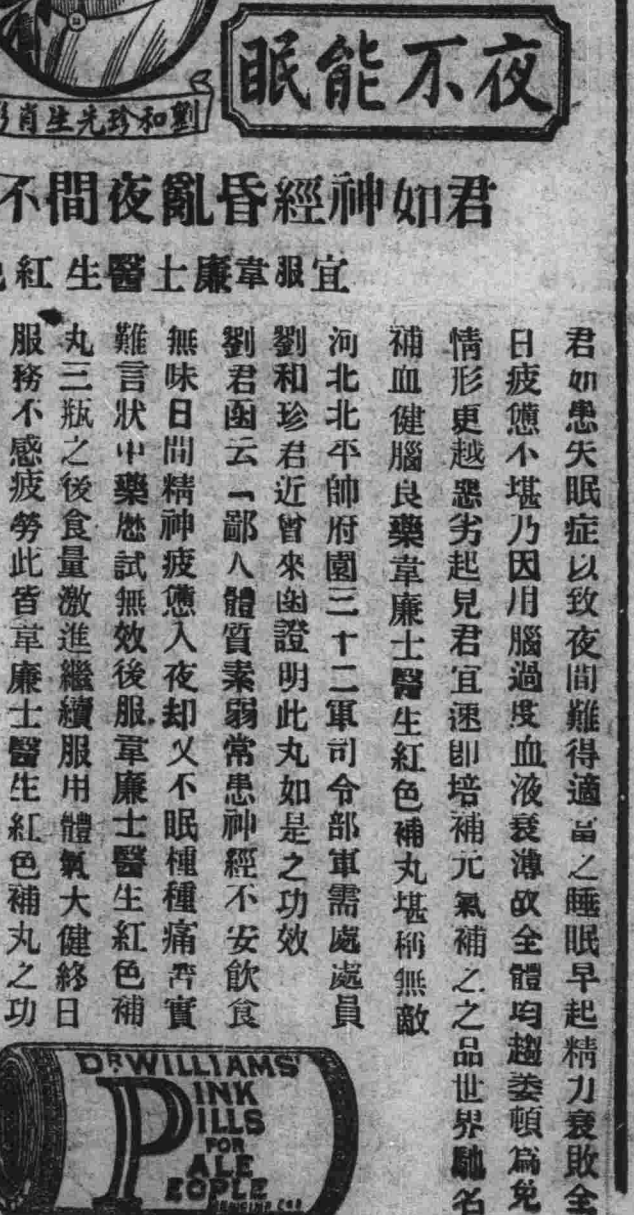 夜不能眠
劉和珍先生肖
君如神經昏亂夜間不
宜服韋廉士醫生紅
君如患失眠症以致夜間難得適當之睡眠早起精力衰敗全
日疲憊不堪乃因用腦過度血液衰薄故全體均趨委頓爲免
情形更越惡劣起見君宜速卽培補元氣補乙之品世界馳名
補血健腦良藥韋廉士醫生紅色補丸堪稱無敵
河北北平帥府園三十二軍司令部軍需處處員
劉和珍君近曾來函證明此丸如是之功效
劉君函云「鄙人體質素弱常患神經不安飲食
無味日間精神疲憊入夜却又不眠種種痛苦實
難言狀中藥歷試無效後服韋廉士醫生紅色補
丸三瓶之後食量激進繼續服用體氣大健終日
服務不感疲勞此皆韋廉士醫生紅色補丸之功
DR WILLIAMS'
PINK
PILLS
FOR
PALE
PEOPLE